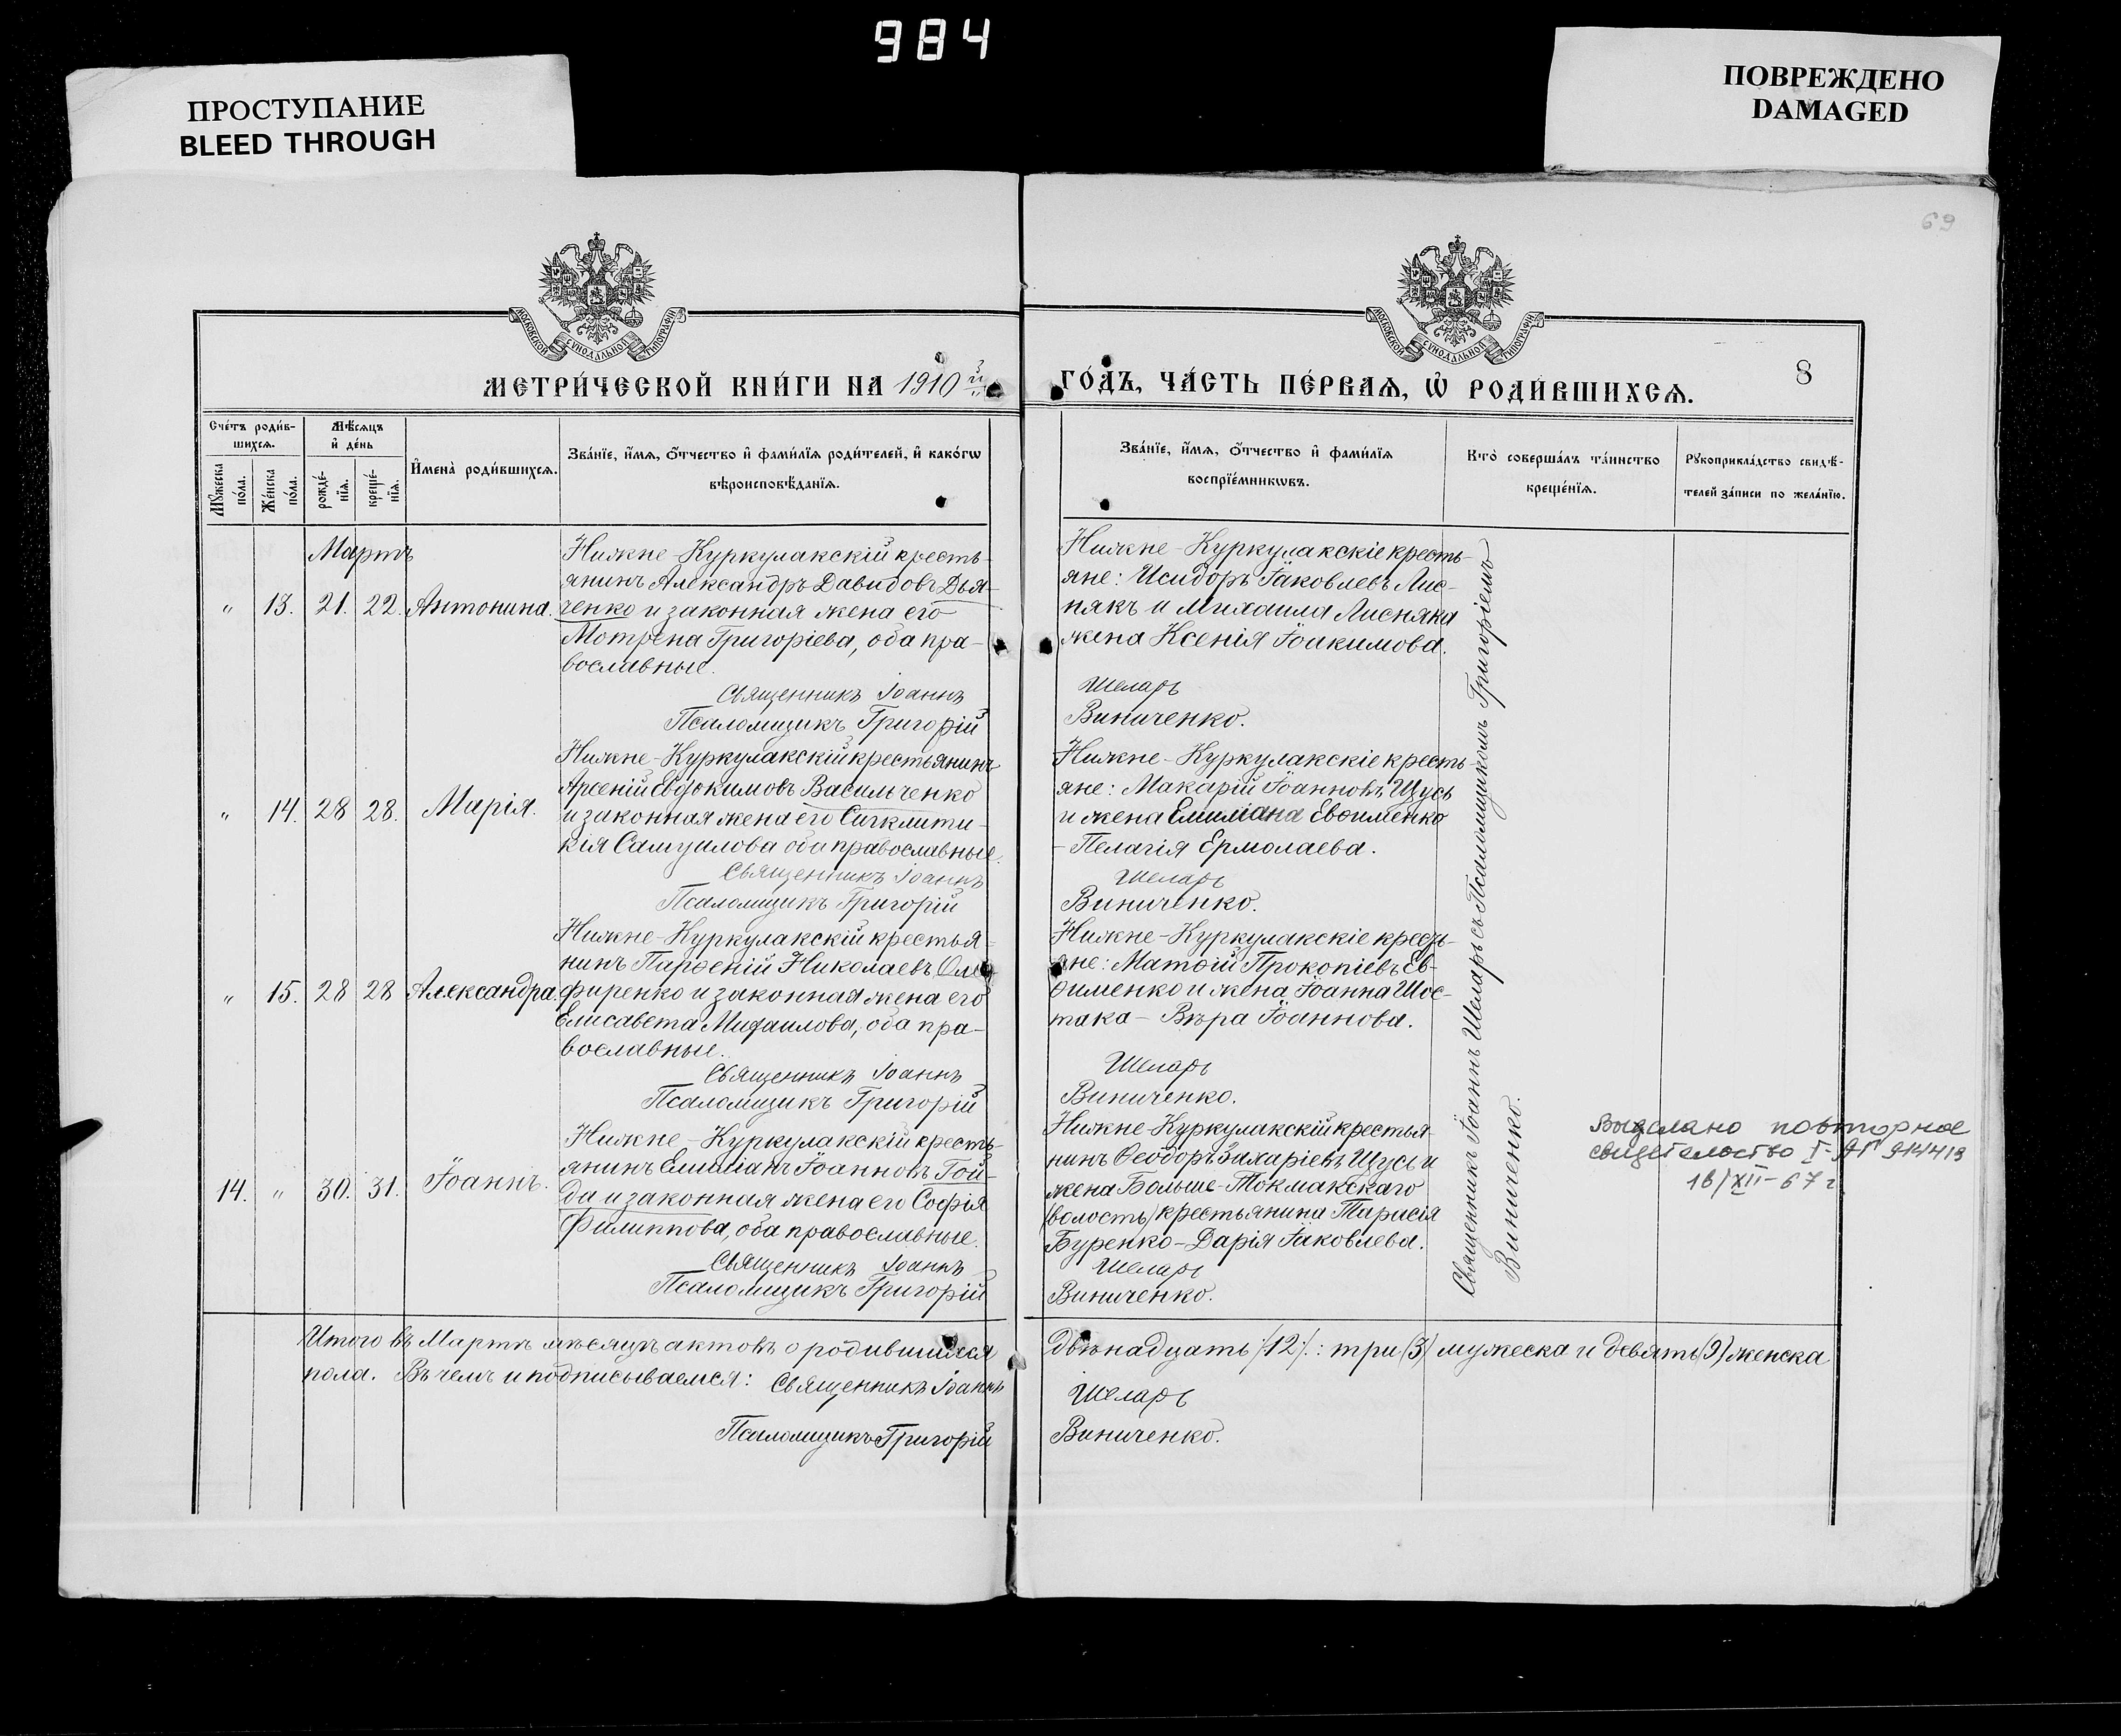 984
ПРОСТУПАНИЕ
BLEED THROUGH
ПОВРЕЖДЕНО
DAMAGED
69
МОСКОВСКОЙ СУНОДАЛЬНОЙ ТИПОГРАФІИ
МОСКОВСКОЙ СУНОДАЛЬНОЙ ТИПОГРАФІИ
8
МЕТРИ́ЧЕСКОЙ КНИ́ГИ НА 1910 й
ГО́ДЪ, ЧА́СТЬ ПЕ́РВАѦ, Ѡ҆ РОДИ́ВШИХСѦ.
Сче́тъ роди́в-
шихсѧ.
Мꙋ́жеска по́ла.
Же́нска по́ла.
Мѣ́сѧцъ
и҆ де́нь
рожде́-нїѧ.
креще́-нїѧ.
И҆мена̀ роди́вшихсѧ.
Зва́нїе, и҆́мѧ, ѻ҆́тчество и҆ фами́лїѧ роди́телей, и҆ како́гѡ
вѣроисповѣ́данїѧ.
Зва́нїе, и҆́мѧ, ѻ҆́тчество и҆ фами́лїѧ
воспрїе́мникѡвъ.
Кто̀ соверша́лъ та́инство
креще́нїѧ.
Рꙋкоприкла́дство свидѣ́-
телей за́писи по жела́нїю.
Мартъ
" 13. 21. 22. Антонина.
Нижне-Куркулакскій кресть-
янинъ Александръ Давидовъ Дья-
ченко и законная жена его
Мотрена Григоріева, оба пра-
вославные.
Священникъ Іоаннъ
Псаломщикъ Григорій
Нижне-Куркулакскіе кресть-
яне: Исидоръ Іаковлевъ Лис-
някъ и Михаила Лисняка
жена Ксенія Іоакимова.
Шеларь
Виниченко.
" 14. 28 28. Марія.
Нижне-Куркулакскій крестьянинъ
Арсеній Евдокимовъ Васильченко
и законная жена его Сигклити-
кія Самуилова оба православные.
Священникъ Іоаннъ
Псаломщикъ Григорій
Нижне-Куркулакскіе кресть-
яне: Макарій Іоанновъ Щусь
и жена Емиліана Евѳименко
- Пелагія Ермолаева.
Шеларь
Виниченко.
" 15. 28 28 Александра.
Нижне-Куркулакскій крестья-
нинъ Парѳеній Николаевъ
фиренко и законная жена его
Елисавета Михаилова, оба пра-
вославные.
Священникъ Іоаннъ
Псаломщикъ Григорій
Нижне-Куркулакскіе кресть-
яне: Матѳій Прокопіевъ Ев-
ѳименко и жена Іоанна Шос-
така - Вѣра Іоаннова.
Шеларь
Виниченко.
14. " 30. 31. Іоаннъ.
Нижне-Куркулакскій кресть-
янинъ Емиліанъ Іоанновъ Гой-
да и законная жена его Софія
Филиппова, оба православные.
Священникъ Іоаннъ
Псаломщикъ Григорій
Нижне-Куркулакскій крестья-
нинъ Ѳеодоръ Захаріевъ Щусь и
жена Больше-Токмакскаго
(волость) крестьянина Тарасія
Буренко - Дарія Іаковлева.
Шеларь
Виниченко.
Священникъ Іоаннъ Шеларь съ Псаломщикомъ Григоріемъ
Виниченко.
Выслано повторное
свидетельство I-АГ 914419
16/XII-67 г
Итого въ Мартѣ мѣсяцѣ актовъ о родившихся
двѣнадцать /12/.: три (3) мужеска и девять (9) женска
пола. Въ чемъ и подписываемся: Священникъ Іоаннъ
Шеларь
Псаломщикъ Григорій
Виниченко.